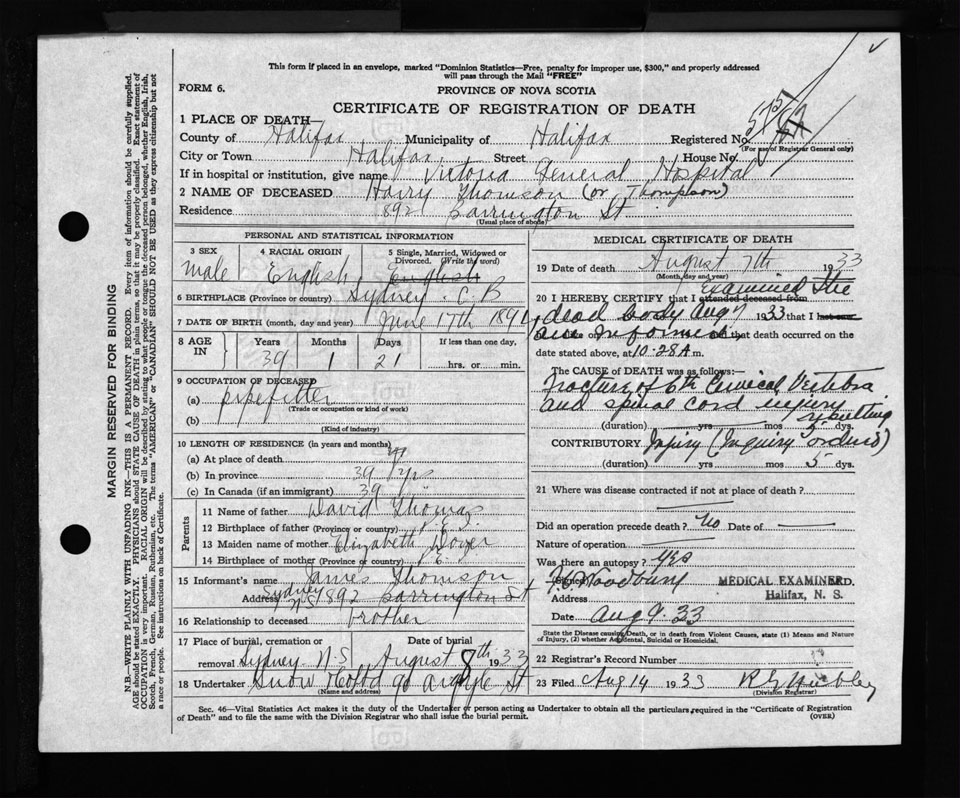 This form if placed in an envelope, marked "Dominion Statistics—Free, penalty for improper use, $300," and properly addressed
will pass through the Mail "FREE"
FORM 6.
PROVINCE OF NOVA SCOTIA
CERTIFICATE OF REGISTRATION OF DEATH
1 PLACE OF DEATH—
County of Halifax Municipality of Halifax Registered No.
(For use of Registrar General only)
City or Town Halifax Street House No.
If in hospital or institution, give name Victoria General Hospital
2 NAME OF DECEASED Harry Thomson (or Thompson)
Residence 892 Barrington St
(Usual place of abode)
PERSONAL AND STATISTICAL INFORMATION
3 SEX 4 RACIAL ORIGIN 5 Single, Married, Widowed or
Divorced. (Write the word)
Male English English
6 BIRTHPLACE (Province or country) Sydney C.B
7 DATE OF BIRTH (month, day and year) June 17th 1894
8 AGE IN Years Months Days If less than one day,
39 1 21 hrs. or min.
9 OCCUPATION OF DECEASED
(a) pipefitter
(Trade or occupation or kind of work)
(b)
(Kind of industry)
10 LENGTH OF RESIDENCE (in years and months)
(a) At place of death
(b) In province 39 yrs
(c) In Canada (if an immigrant) 39
Parents
11 Name of father David Thomas
12 Birthplace of father (Province or country)
13 Maiden name of mother Elizabeth
14 Birthplace of mother (Province or country)
15 Informant's name James Thomson
Address Sydney N.S 892 Barrington St
16 Relationship to deceased brother
17 Place of burial, cremation or Date of burial
removal Sydney N.S August 8th 1933
18 Undertaker Snow 90 Argyle St
(Name and address)
MEDICAL CERTIFICATE OF DEATH
19 Date of death August 7th 1933
(Month, day and year)
examined the
20 I HEREBY CERTIFY that I attended deceased from
dead body Aug 7 1933 that I last saw
am informed that death occurred on the
date stated above, at 10.28 A m.
The CAUSE of DEATH was as follows:—
Fracture of 6th Cervical Vertebra
and spinal cord injury resulting
(duration) yrs mos 5 dys.
CONTRIBUTORY Injury (Inquiry orders)
(duration) yrs mos 5 dys.
21 Where was disease contracted if not at place of death?
Did an operation precede death? No Date of
Nature of operation
Was there an autopsy? Yes
Signed Woodbury MEDICAL EXAMINER
Address Halifax, N. S.
Date Aug 9. 33
State the Disease causing Death, or in death from Violent Causes, state (1) Means and Nature
of Injury, (2) whether Accidental, Suicidal or Homicidal.
22 Registrar's Record Number
23 Filed Aug 14 1933
(Division Registrar)
Sec. 46—Vital Statistics Act makes it the duty of the Undertaker or person acting as Undertaker to obtain all the particulars required in the "Certificate of Registration
of Death" and to file the same with the Division Registrar who shall issue the burial permit.
(OVER)
MARGIN RESERVED FOR BINDING
N.B.—WRITE PLAINLY WITH UNFADING INK—THIS IS A PERMANENT RECORD. Every item of information should be carefully supplied.
AGE should be stated EXACTLY. PHYSICIANS should STATE CAUSE OF DEATH in plain terms, so that it may be properly classified. Exact statement of
OCCUPATION is very important. RACIAL ORIGIN will be described by stating to what people or tongue the deceased person belonged, whether English, Irish,
Scotch, French, German, Russian, Ruthenian, etc. The terms "AMERICAN" or "CANADIAN" SHOULD NOT BE USED as they express citizenship but not
a race or people. See instructions on back of Certificate.